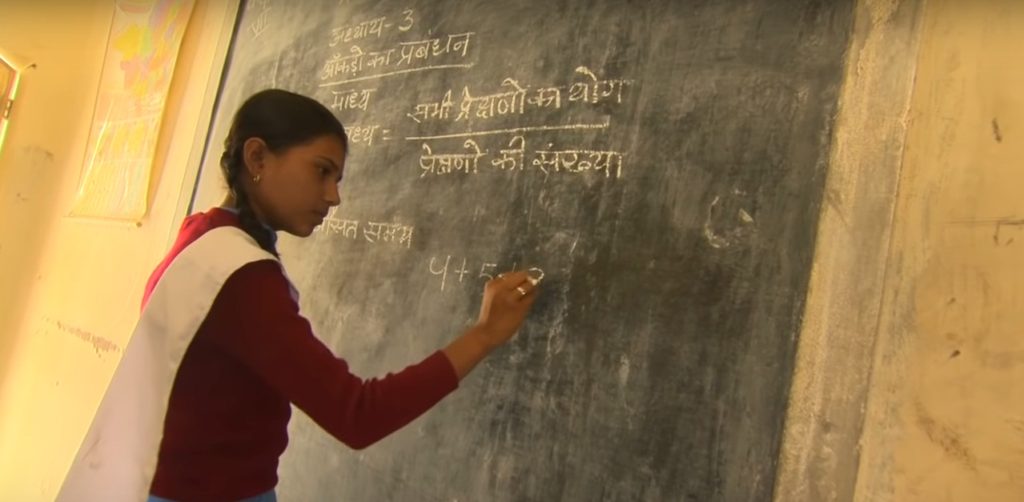 अध्याय- 3
आंकड़ो का प्रबंधन
माध्य
सभी प्रेक्षणो का योग
=
प्रेक्षणो की संख्या
4 + 5 +